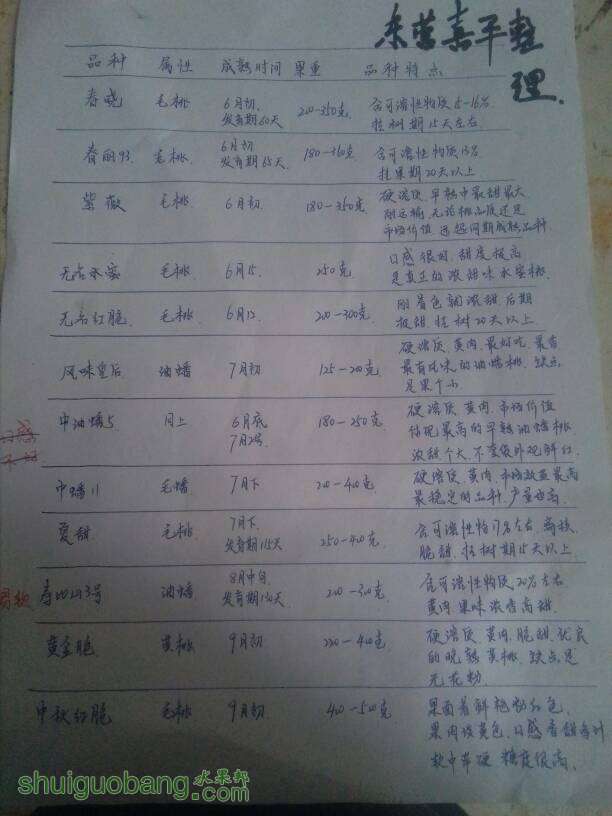 东营嘉平整
理.
品种 属性 成熟时间 果重 品种特点
春晓 毛桃 6月初. 200-350克 含可溶性物质15-16%
发育期60天 挂树期15天左右.
春丽93. 毛桃. 6月初 180-350克 含可溶性物质13%
发育期65天. 挂果期20天以上
紫薇 毛桃. 6月初 180-350克 硬溶质. 早熟中最甜最大
耐运输. 无论桃品质还是
市场价值 远超同期成熟品种
无名水蜜 毛桃 6月15. 250克 口感很好. 甜度极高
是真正的浓甜味水蜜桃.
无名红脆. 毛桃. 6月12. 200-300克 刚着色就浓甜. 后期
极甜. 挂树20天以上.
风味皇后. 油蟠 7月初 125-200克 硬溶质. 黄肉. 最好吃. 最香
最有风味的油蟠桃. 缺点
是果个小
中油蟠5 同上 6月底 180-250克 硬溶质. 黄肉. 市场价值
7月2号. 体现最高的早熟油蟠桃.
浓甜个大. 不套袋外观鲜红.
口感
中蟠11 毛蟠 7月下 200-400克 硬溶质. 黄肉. 市场效益最高
最稳定的品种. 产量也高.
夏甜 毛桃. 7月下. 250-400克. 含可溶性物17%左右. 离核.
发育期115天 脆甜. 挂树期15天以上.
寿北山3号 油蟠 8月中旬. 200-300克 含可溶性物质20%左右
发育期130天 黄肉. 果味浓香高甜.
黄金脆 黄桃 9月初 220-400克 硬溶质. 黄肉. 脆甜. 优良
的晚熟黄桃. 缺点是
无花粉.
中秋红脆 毛桃. 9月初. 400-500克 果面着鲜艳粉红色.
果肉淡黄色. 口感香甜多汁
软中带硬 糖度很高.
shuiguobang.com
水果邦